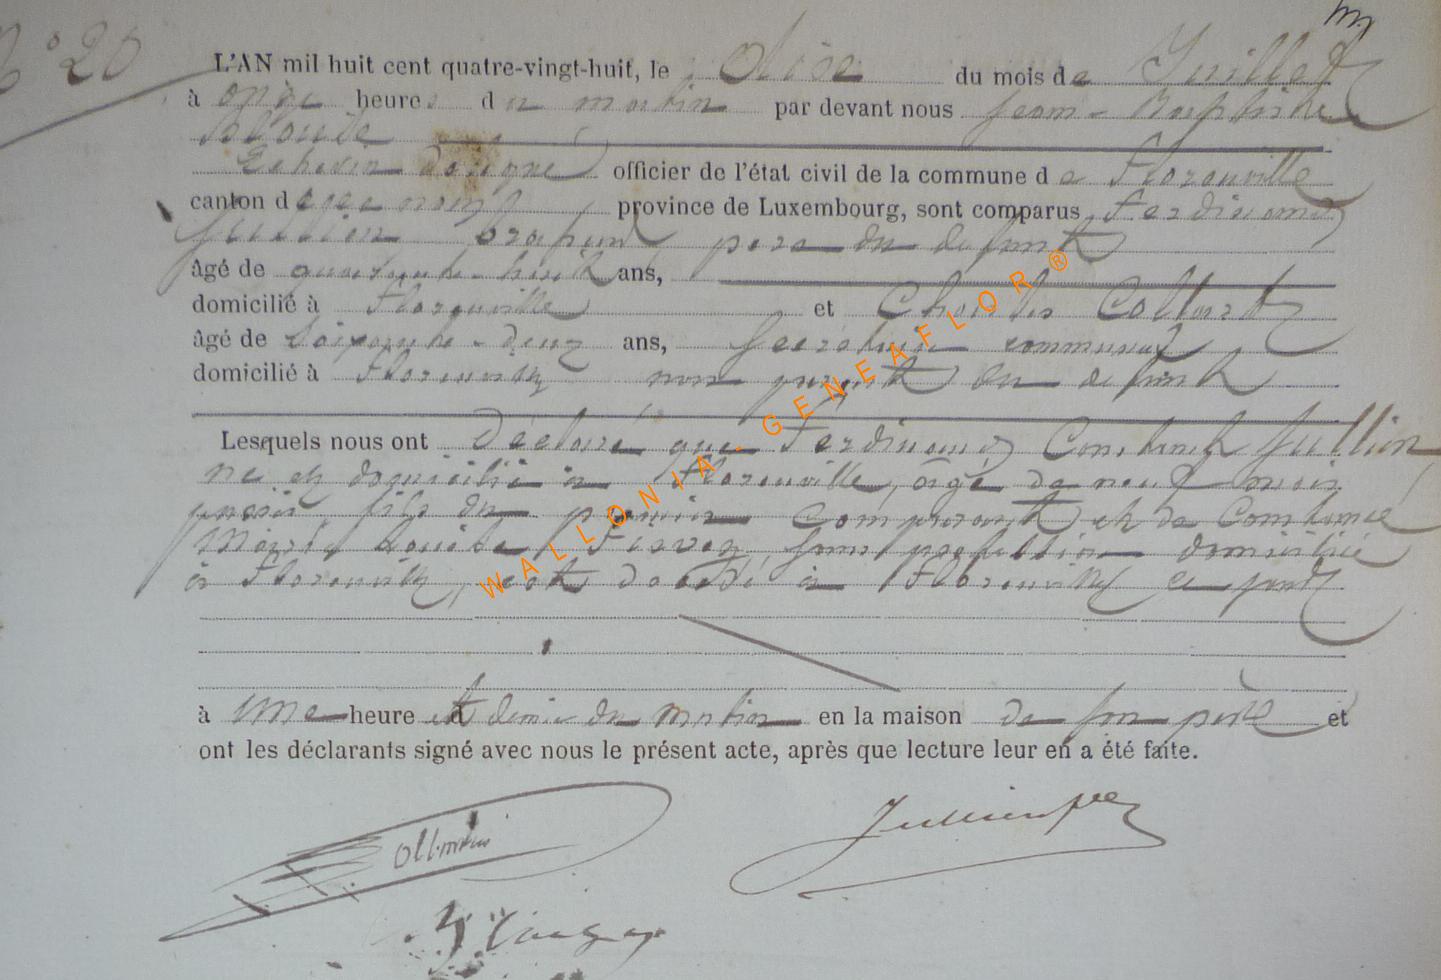 N° 20
L'AN mil huit cent quatre-vingt-huit, le onze du mois de Juillet
à onze heures du matin par devant nous Jean-Baptiste
Echevin délégué officier de l'état civil de la commune de Florenville
canton de ce nom province de Luxembourg, sont comparus Ferdinand
Jullien père du défunt
âgé de quarante-huit ans,
domicilié à Florenville et Charles Collart
âgé de soixante-deux ans, Secrétaire communal
domicilié à Florenville non parent du défunt
Lesquels nous ont déclaré que Ferdinand Constant Jullien
né et domicilié à Florenville, âgé de neuf mois
fils du premier comparant et de Constance
Marie sans profession domiciliée
à Florenville, est décédé à Florenville ce jourd'
à une heure et demie du matin en la maison de son père et
ont les déclarants signé avec nous le présent acte, après que lecture leur en a été faite.
Jullien
WALLONIA - GENEAFLOR ®